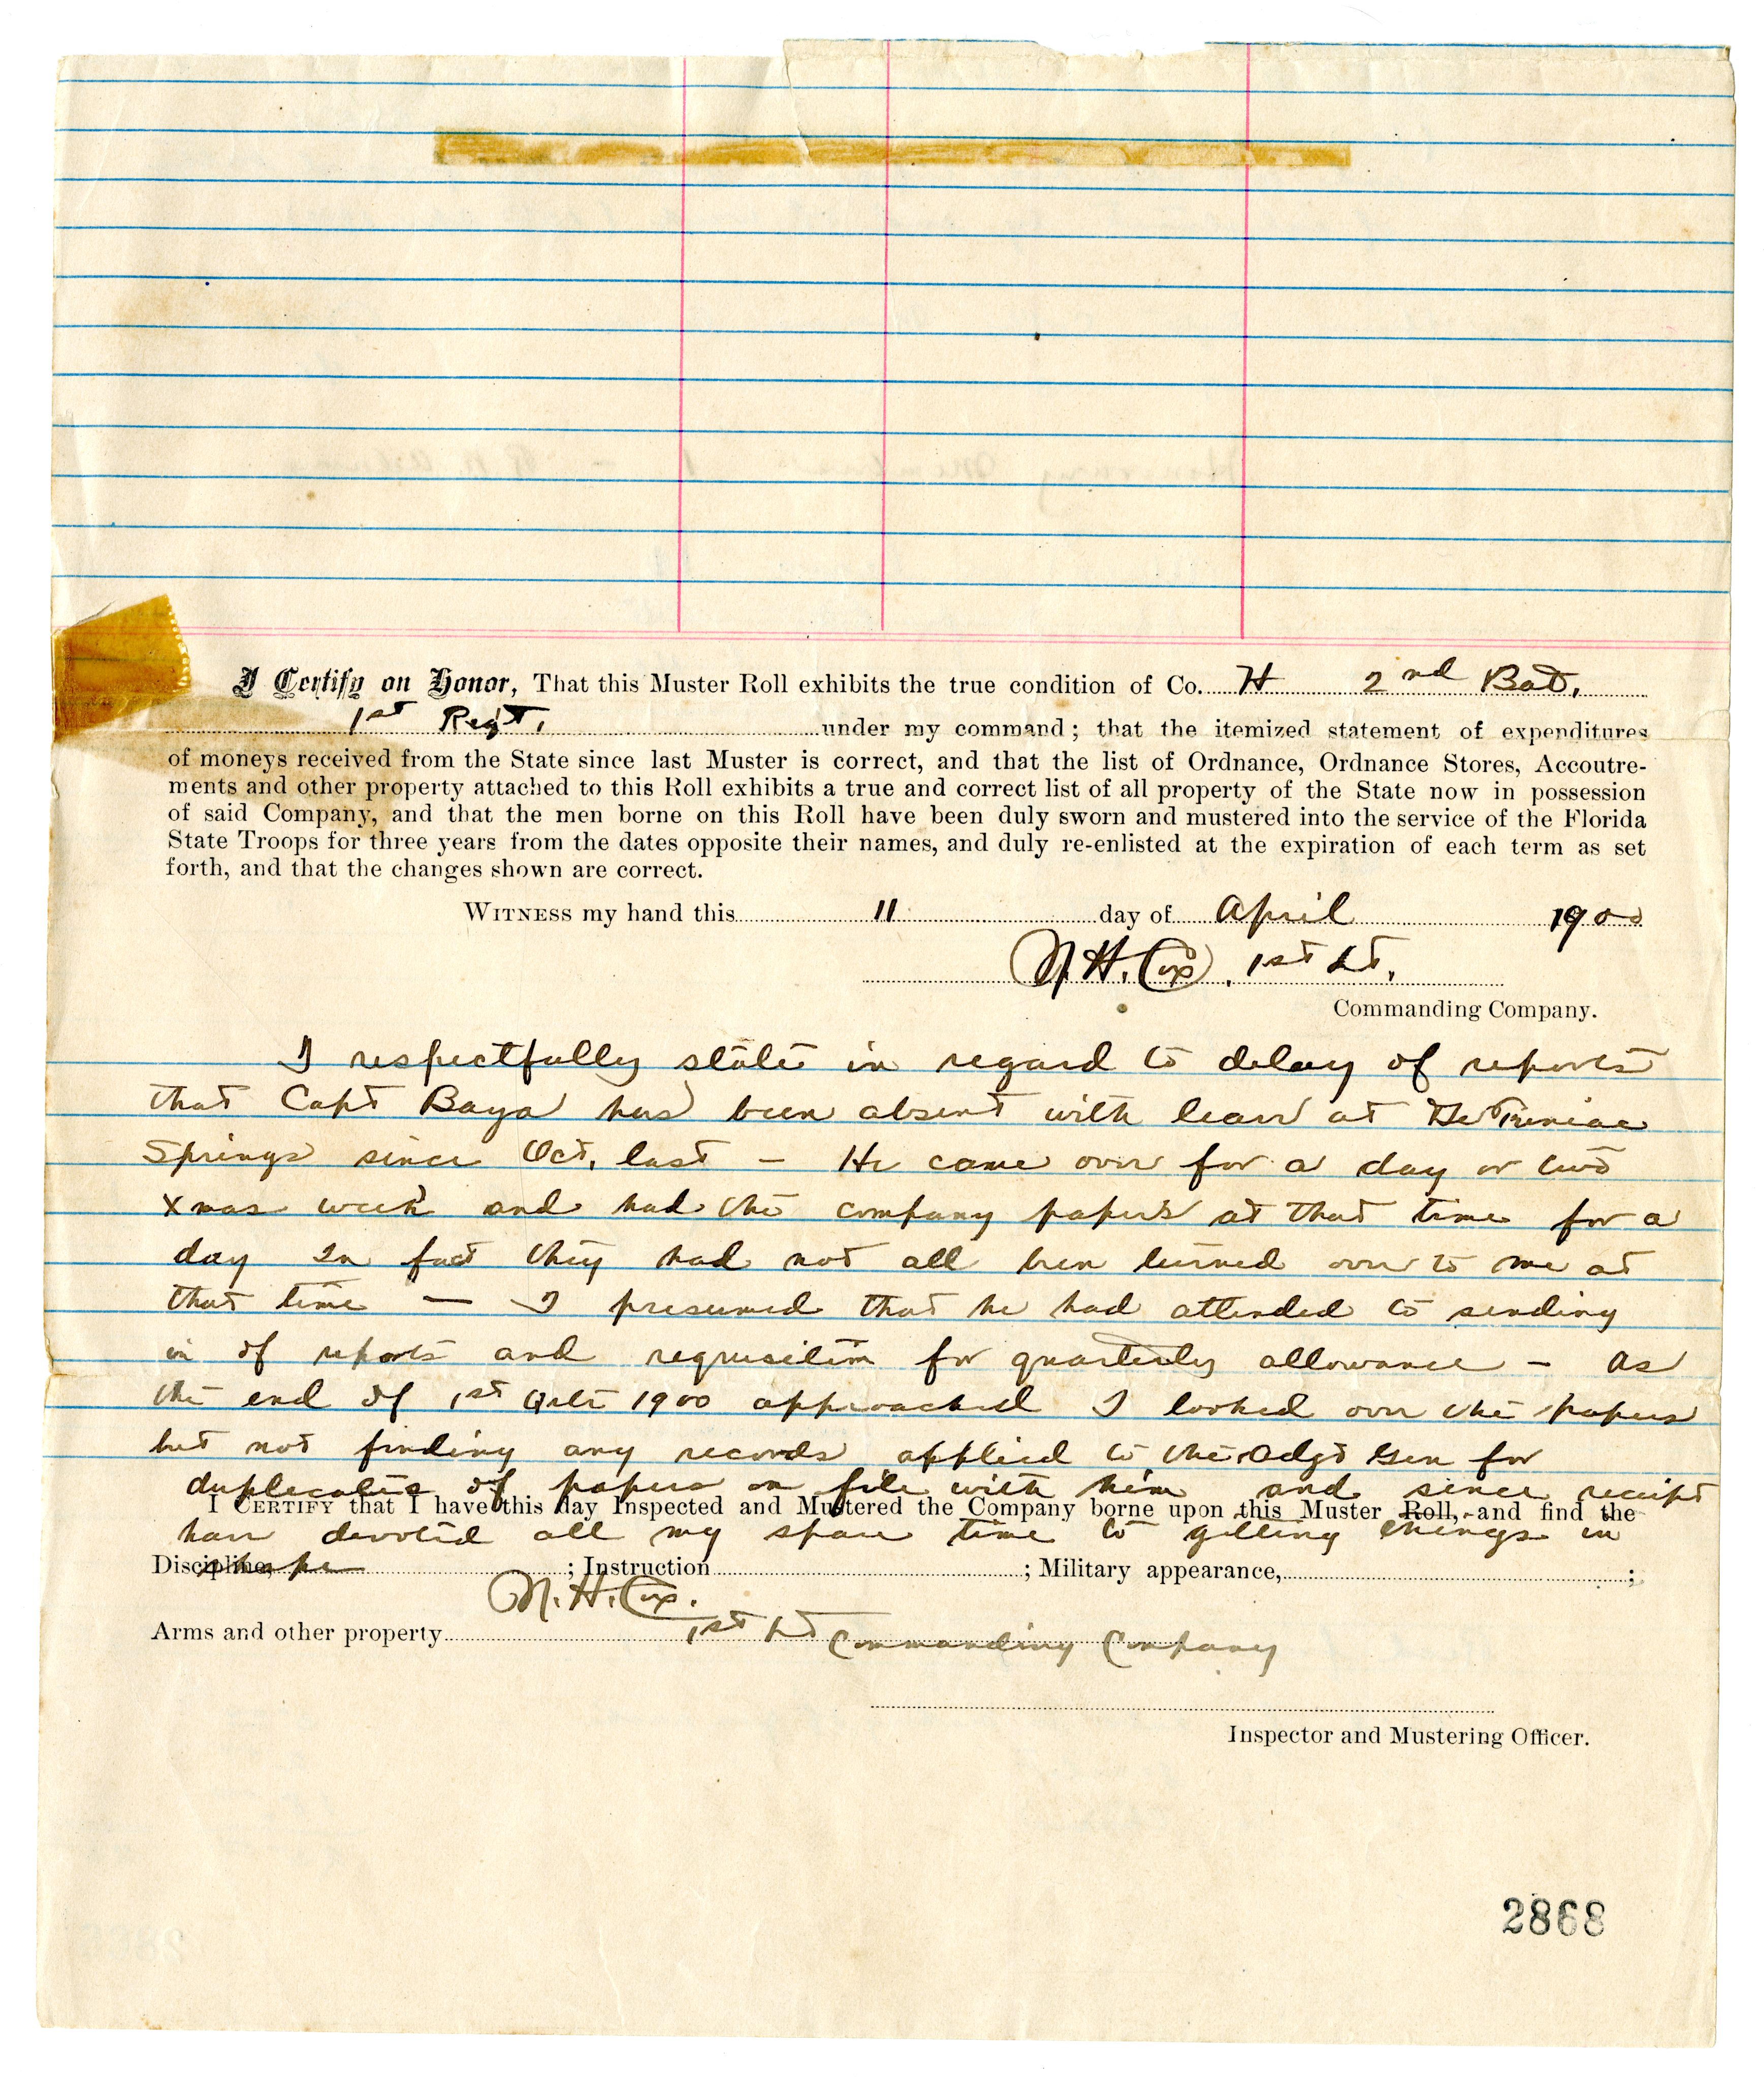 I Certify on Honor, That this Muster Roll exhibits the true condition of Co. H 2nd Bat,
1st Regt, under my command; that the itemized statement of expenditures
of moneys received from the State since last Muster is correct, and that the list of Ordnance, Ordnance Stores, Accoutre-
ments and other property attached to this Roll exhibits a true and correct list of all property of the State now in possession
of said Company, and that the men borne on this Roll have been duly sworn and mustered into the service of the Florida
State Troops for three years from the dates opposite their names, and duly re-enlisted at the expiration of each term as set
forth, and that the changes shown are correct.
WITNESS my hand this 11 day of April 1900
H. Cox, 1st Lt,
Commanding Company.
I respectfully state in regard to delay of reports
that Capt Baya has been absent with leave at De Funiac
Springs since Oct, last — He came over for a day or two
Xmas week and had the company papers at that time for a
day In fact they had not all been turned over to me at
that time — I presumed that he had attended to sending
in of reports and requisition for quarterly allowance — As
the end of 1st Qutr 1900 approached I looked over the papers
but not finding any records applied to the Adgt Gen for
duplicates of papers on file with him and since receipt
I CERTIFY that I have this day Inspected and Mustered the Company borne upon this Muster Roll, and find the
have devoted all my spare time to getting things in
Discipline, shape ; Instruction ; Military appearance, ;
H. Cox.
Arms and other property 1st Lt Commanding Company
Inspector and Mustering Officer.
2868